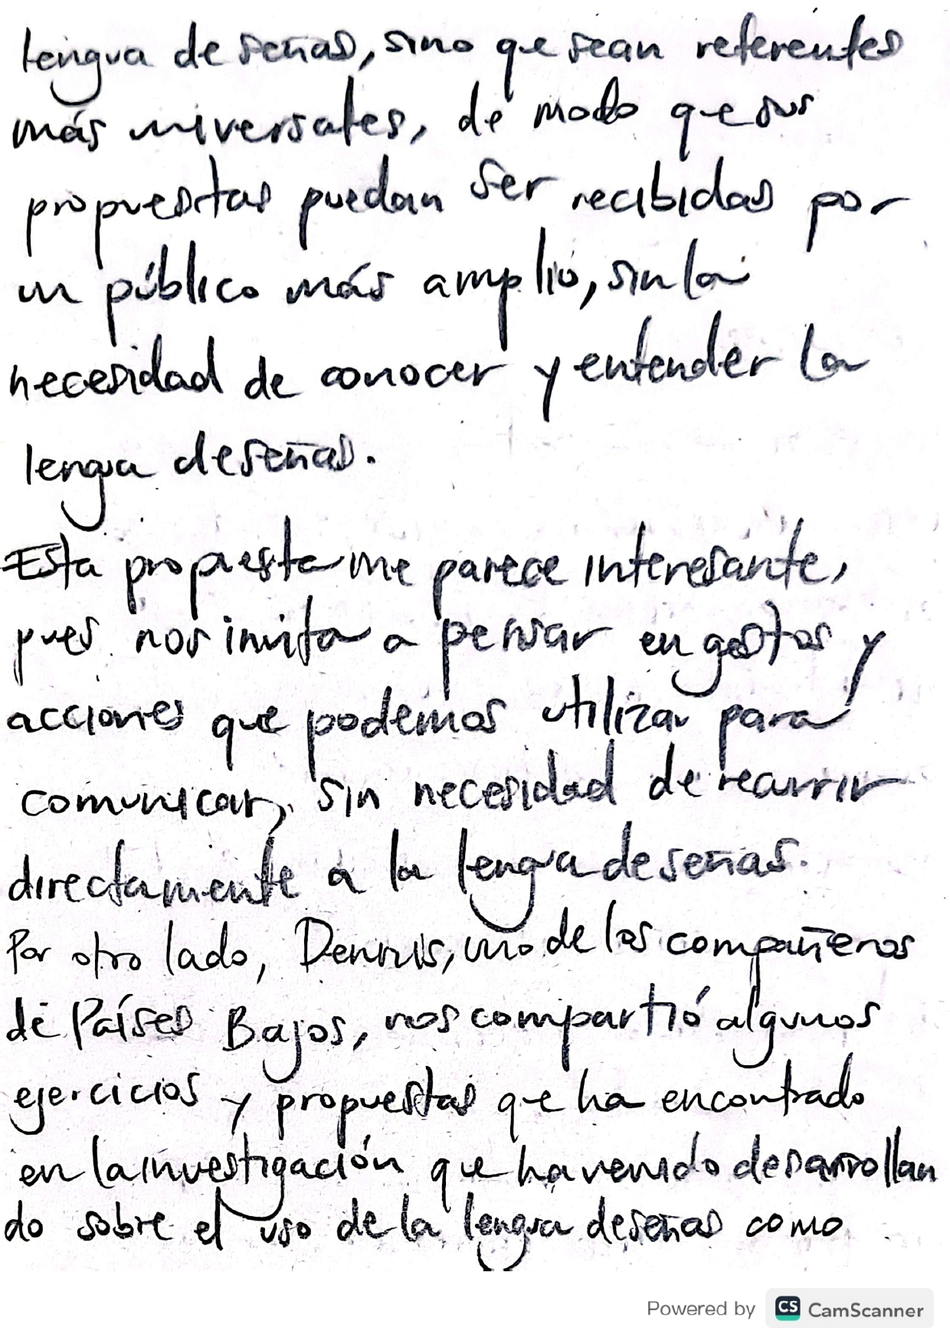 lengua de señas, sino que sean referentes
más universales, de modo que sus
propuestas puedan ser recibidas por
un público más amplio, sin la
necesidad de conocer y entender la
lengua de señas.
Esta propuesta me parece interesante,
pues nos invita a pensar en gestos y
acciones que podemos utilizar para
comunicar, sin necesidad de recurrir
directamente a la lengua de señas.
Por otro lado, Dennis, uno de los compañeros
de Países Bajos, nos compartió algunos
ejercicios y propuestas que ha encontrado
en la investigación que ha venido desarrollan
do sobre el uso de la lengua de señas como
Powered by CS CamScanner